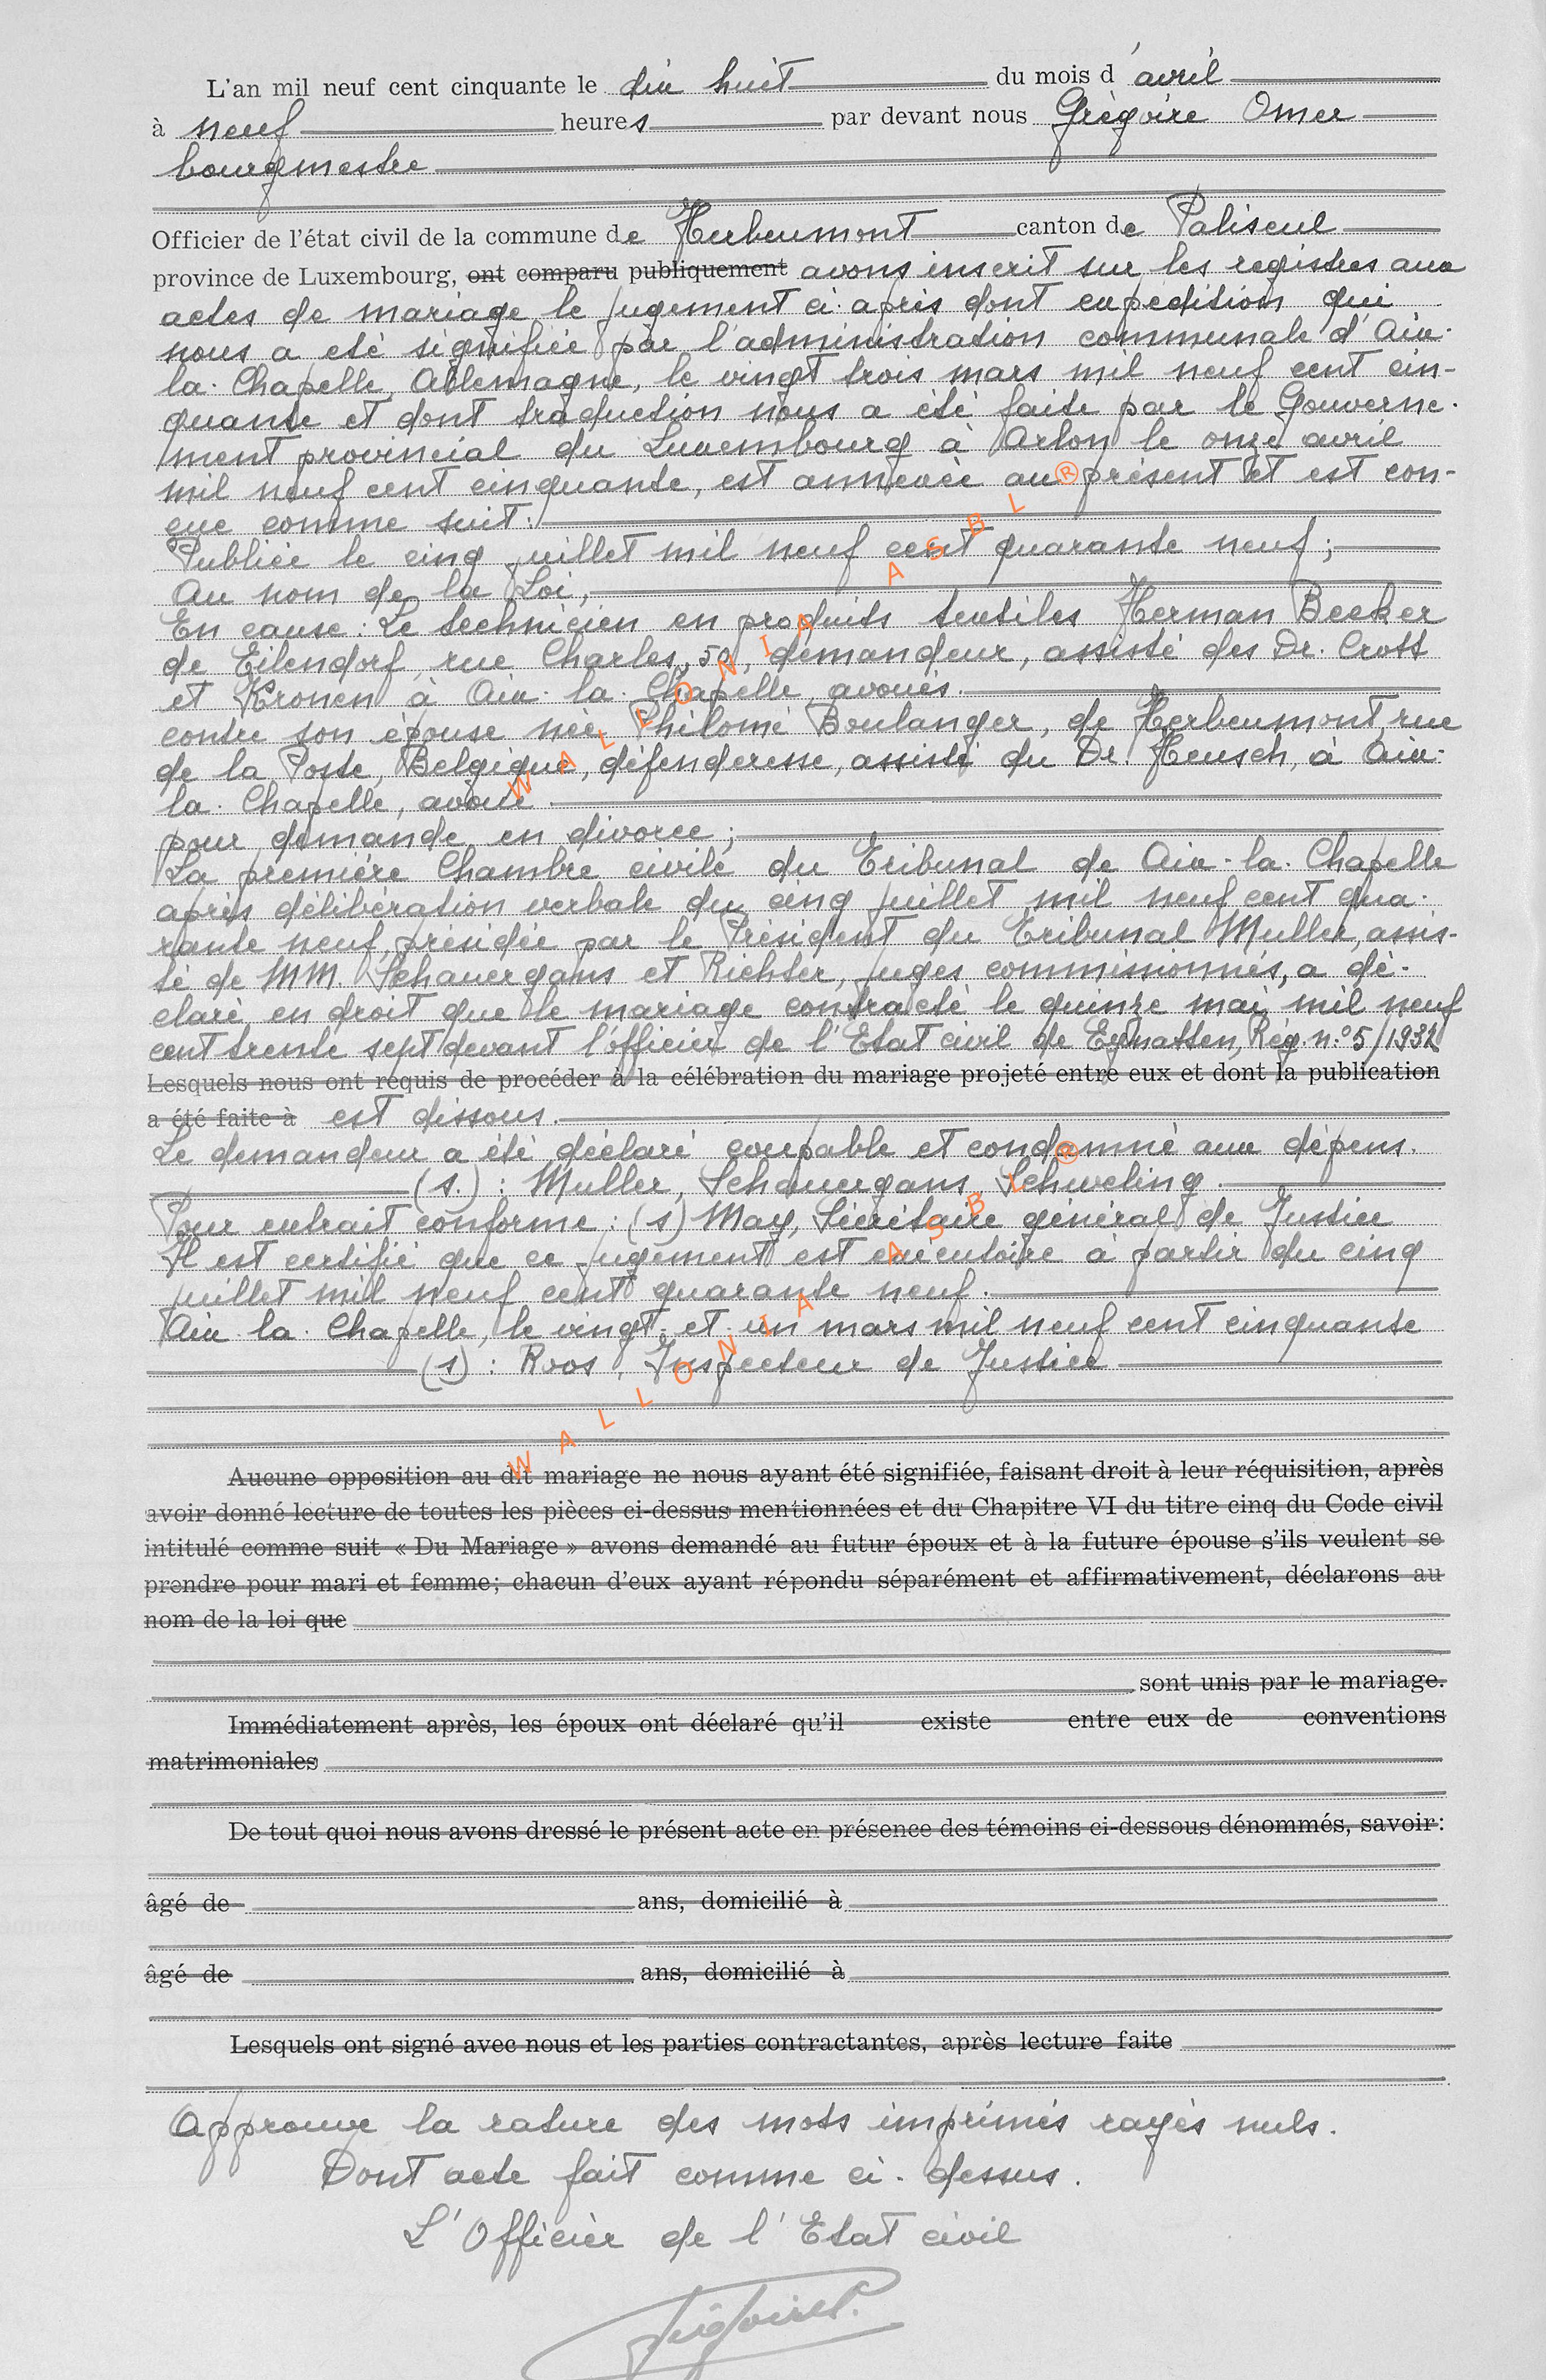 L'an mil neuf cent cinquante le dix huit du mois d'avril
à neuf heures par devant nous Grégoire Omer
bourgmestre
Officier de l'état civil de la commune de Herbeumont canton de Paliseul
province de Luxembourg, ont comparu publiquement avons inscrit sur les registres aux
actes de mariage le jugement ci-après dont expédition qui
nous a été signifiée par l'administration communale d'Aix-
la-Chapelle, Allemagne, le vingt trois mars mil neuf cent cin-
quante et dont traduction nous a été faite par le Gouverne-
ment provincial du Luxembourg à Arlon le onze avril
mil neuf cent cinquante, est annexée au présent et est con-
çue comme suit:
Publiée le cinq juillet mil neuf cent quarante neuf;
Au nom de la Loi,
En cause: Le technicien en produits textiles Herman Becker
de Eilendorf, rue Charles, 50, demandeur, assisté des Dr. Crott
et Kronen à Aix-la-Chapelle, avoués.
contre son épouse née Philomé Boulanger, de Herbeumont, rue
de la Poste, Belgique, défenderesse, assisté du Dr. Heusch, à Aix-
la-Chapelle, avoué.
pour demande en divorce;
La première Chambre civile du Tribunal de Aix-la-Chapelle
après délibération verbale du cinq juillet mil neuf cent qua-
rante neuf, présidée par le Président du Tribunal Muller, assis-
té de MM. Schauergans et Richter, juges commissionnés, a dé-
claré en droit que le mariage contracté le quinze mai mil neuf
cent trente sept devant l'officier de l'Etat civil de Eynatten, Rég. n° 5/1937
Lesquels nous ont requis de procéder à la célébration du mariage projeté entre eux et dont la publication
a été faite à est dissous.
Le demandeur a été déclaré coupable et condamné aux dépens.
(s.): Muller, Schauergans, Schweling.
Pour extrait conforme: (s) May, Sécrétaire général de Justice
Il est certifié que ce jugement est exécutoire à partir du cinq
juillet mil neuf cent quarante neuf.
Aix-la-Chapelle, le vingt-et-un mars mil neuf cent cinquante
(s): Roos, Inspecteur de Justice
Aucune opposition au dit mariage ne nous ayant été signifiée, faisant droit à leur réquisition, après
avoir donné lecture de toutes les pièces ci-dessus mentionnées et du Chapitre VI du titre cinq du Code civil
intitulé comme suit « Du Mariage » avons demandé au futur époux et à la future épouse s'ils veulent se
prendre pour mari et femme; chacun d'eux ayant répondu séparément et affirmativement, déclarons au
nom de la loi que
sont unis par le mariage.
Immédiatement après, les époux ont déclaré qu'il existe entre eux de conventions
matrimoniales
De tout quoi nous avons dressé le présent acte en présence des témoins ci-dessous dénommés, savoir:
âgé de ans, domicilié à
âgé de ans, domicilié à
Lesquels ont signé avec nous et les parties contractantes, après lecture faite
Approuve la rature des mots imprimés rayés nuls.
Dont acte fait comme ci-dessus.
L'Officier de l'Etat civil
WALLONIA ASBL ®
WALLONIA ASBL ®